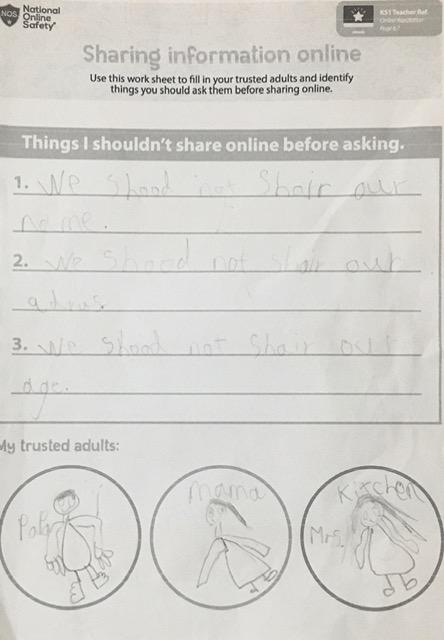 NOS National
Online
Safety
KS1 Teacher Ref
Online Reputation
Page 67
Sharing information online
Use this work sheet to fill in your trusted adults and identify
things you should ask them before sharing online.
Things I shouldn't share online before asking.
1. We shood not Shair our
name.
2. We shood not shair our
adrus.
3. We shood not Shair our
age.
My trusted adults:
mama
Kitchen
Mrs.